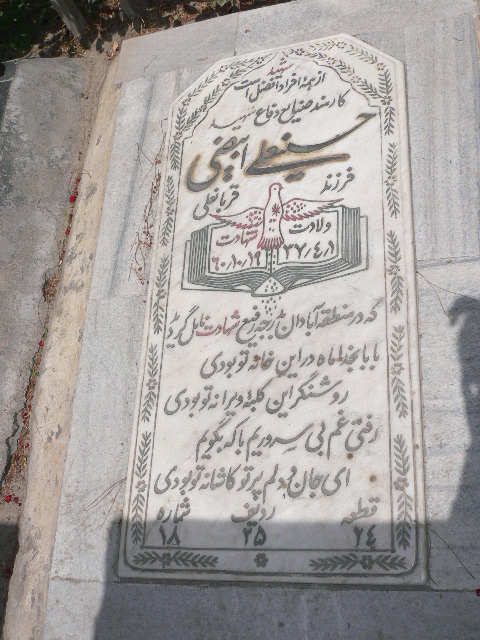 شهید
از همه افراد افضل است
کارمند صنایع دفاع شهید
حسینعلی آبیضی
فرزند قربانعلی
ولادت شهادت
۳۷/۴/۱ ۶۰/۱۰/۱۹
که در منطقه آبادان بدرجه رفیع شهادت نایل گردید
بابا بخدا ماه در این خانه تو بودی
روشنگر این کلبه ویرانه تو بودی
رفتی غم بی سروریم با که بگویم
ای جان و دلم پرتو کاشانه تو بودی
قطعه ردیف شماره
۲٤ ۲۵ ۱۸